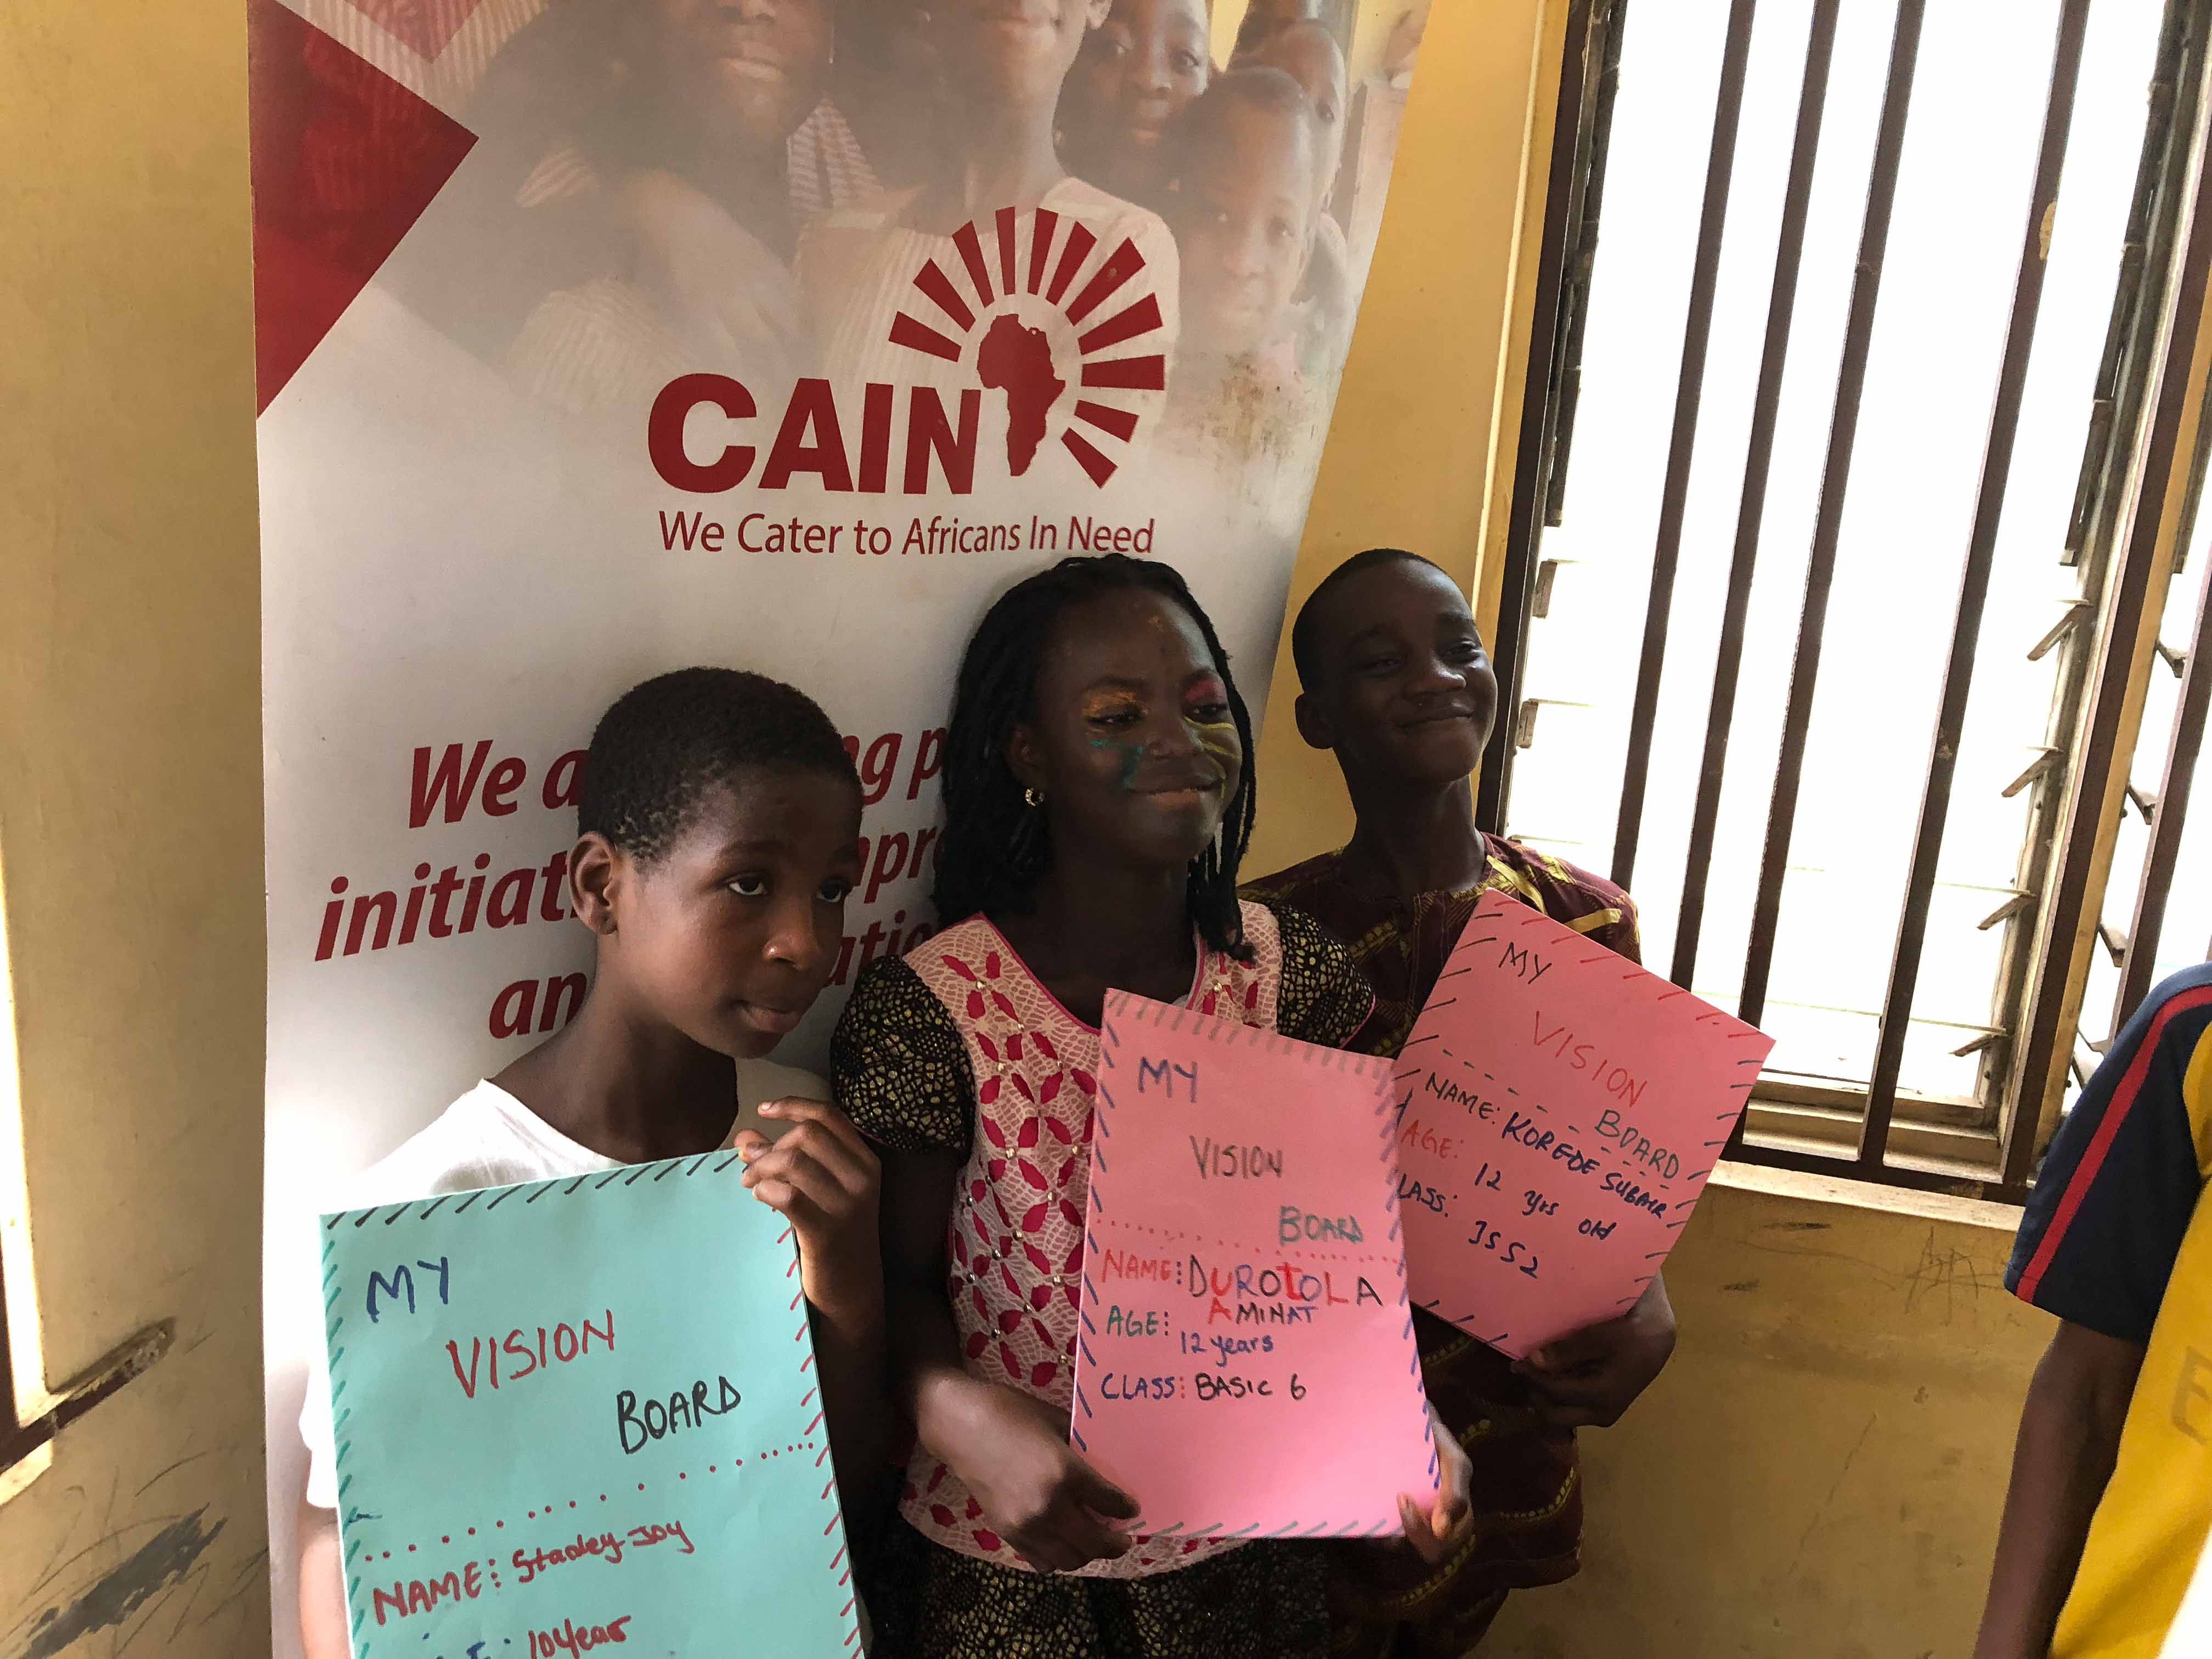 CAIN
We Cater to Africans In Need
We
initiat
an
MY
VISION
BOARD
NAME: Stanley Joy
10 Year
MY
VISION
BOARD
NAME: DUROTOLA
AMINAT
AGE:
12 years
CLASS: BASIC 6
MY
VISION
BOARD
NAME: KOREDE SUBAIR
AGE: 12 yrs old
LASS: JSS2